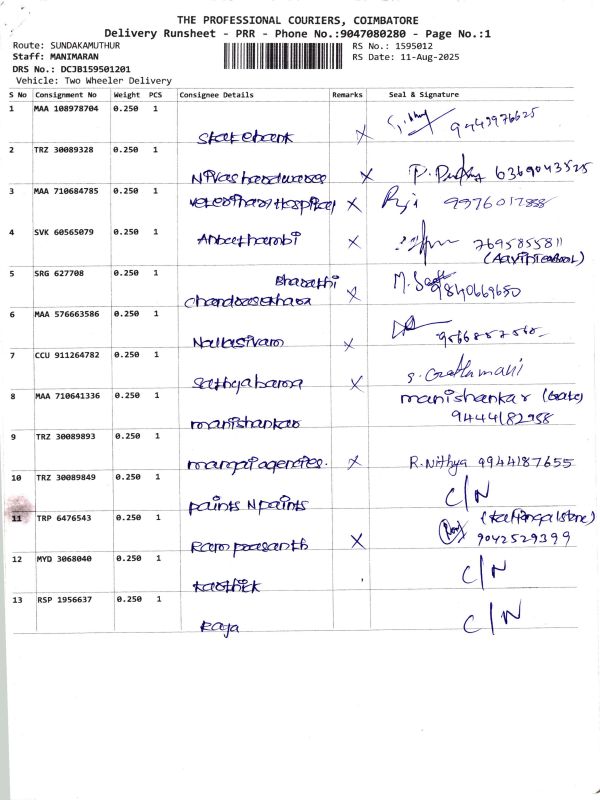 THE PROFESSIONAL COURIERS, COIMBATORE
Delivery Runsheet - PRR - Phone No.:9047080280 - Page No.:1
Route: SUNDAKAMUTHUR
RS No.: 1595012
Staff: MANIMARAN
RS Date: 11-Aug-2025
DRS No.: DCJB159501201
Vehicle: Two Wheeler Delivery
S No Consignment No Weight PCS Consignee Details Remarks Seal & Signature
1 MAA 108978704 0.250 1
State bank X 9443976625
2 TRZ 30089328 0.250 1
Nivas hardwares X 6369043525
3 MAA 710684785 0.250 1
veterinary Hospital X 9976017888
4 SVK 60565079 0.250 1
Anbuthambi X 7695855811
5 SRG 627708 0.250 1
Bharathi
chandrasekhara X 9840669650
6 MAA 576663586 0.250 1
Nallasivam X
7 CCU 911264782 0.250 1
Sathyabama X
8 MAA 710641336 0.250 1
manishankar (Gate)
manishankar 9444182958
9 TRZ 30089893 0.250 1
mangai agencies. X R.Nithya 9944187655
10 TRZ 30089849 0.250 1
paints N paints C/N
11 TRP 6476543 0.250 1
Ram prasanth X 9042529399
12 MYD 3068040 0.250 1
karthik C/N
13 RSP 1956637 0.250 1
Raja C/N